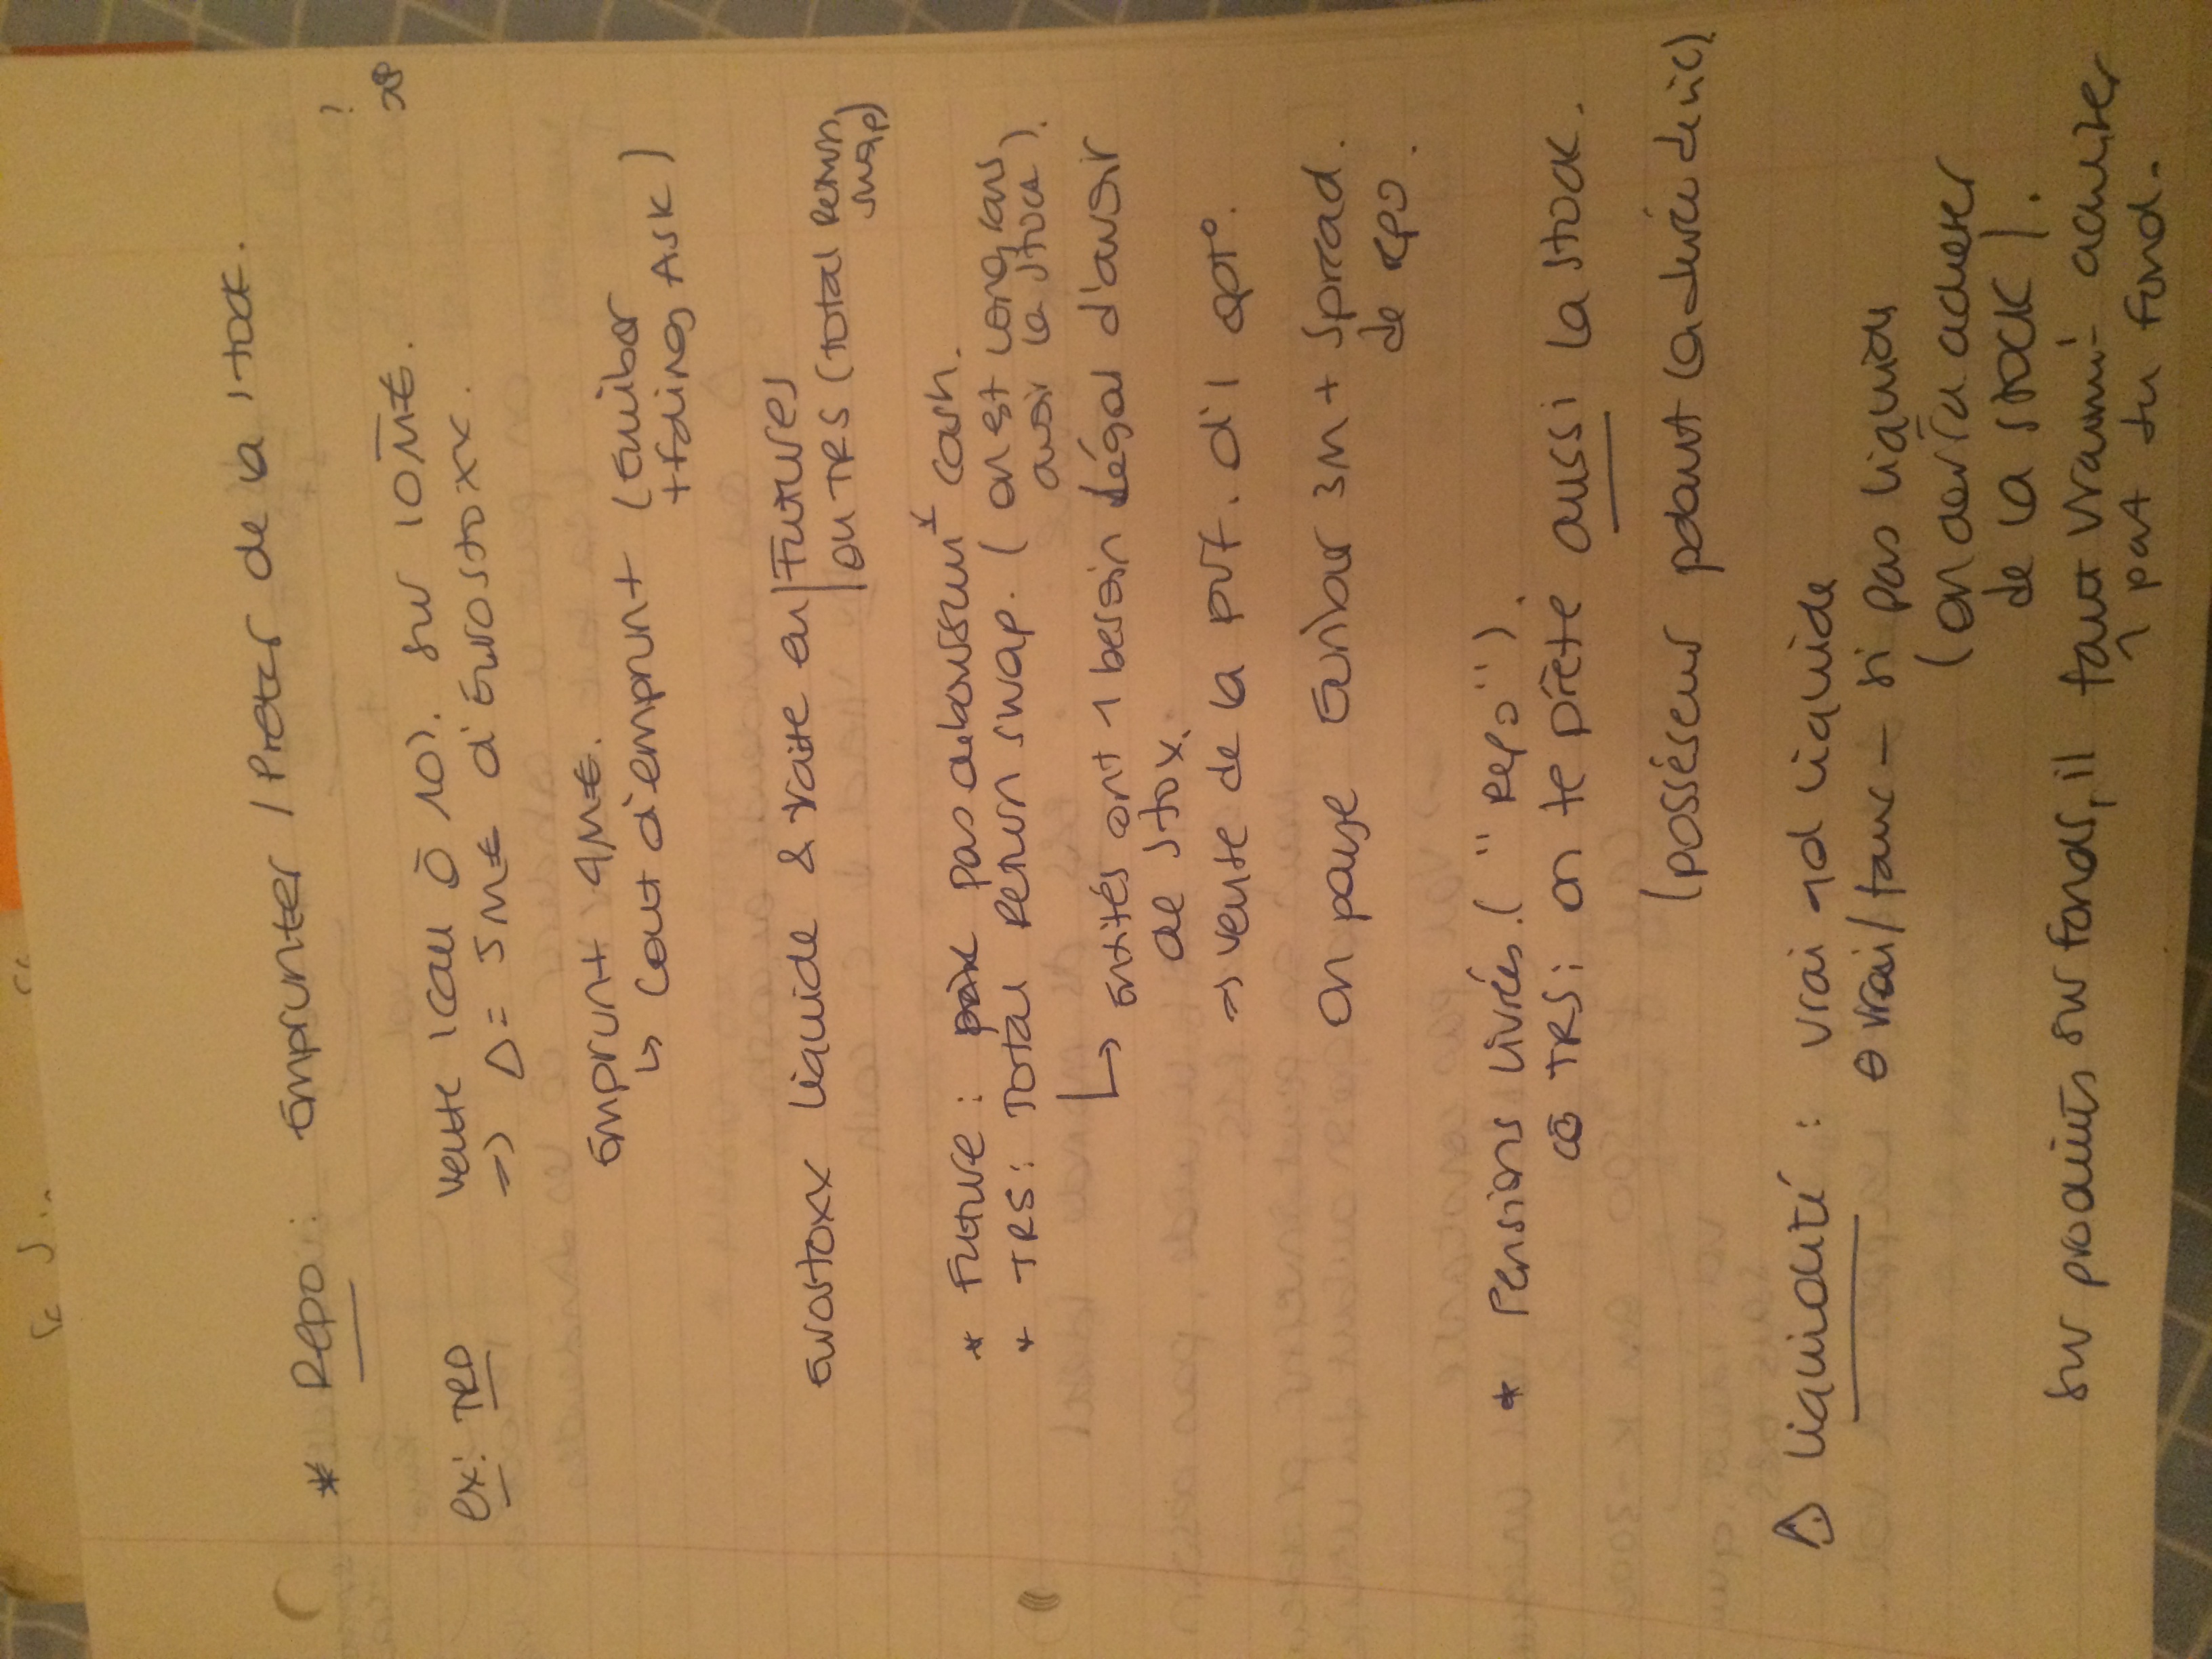 * Repo : Emprunter / Preter de la stock.
?
ex: TRD vente 1 call à 10%. sur 10 M€.
=> Δ = 5M€ d'Eurostoxx.
Emprunt 4M€.
↳ Cout d'emprunt (Euribor
+ fding Ask)
Eurostoxx liquide & traite en | Futures
ou TRS (Total Return
swap)
* Future : pas deboursemt cash.
* TRS: Total Return swap. (on est long sans
avoir la stock).
↳ Entités ont 1 besoin légal d'avoir
de stox.
=> vente de la perf. d'1 opt°.
on paye Euribor 3M + Spread.
de repo.
* Pensions Livrées. ("Repo").
cō TRS; on te prête aussi la stock.
(posséseur pdant la durée de vie)
⚠ Liquidité : vrai qd liquide
⊖ vrai/faux – si pas liquide
(on devra acheter
de la stock).
Sur produits sur fonds, il faut vraimt acheter
1 part du fond.